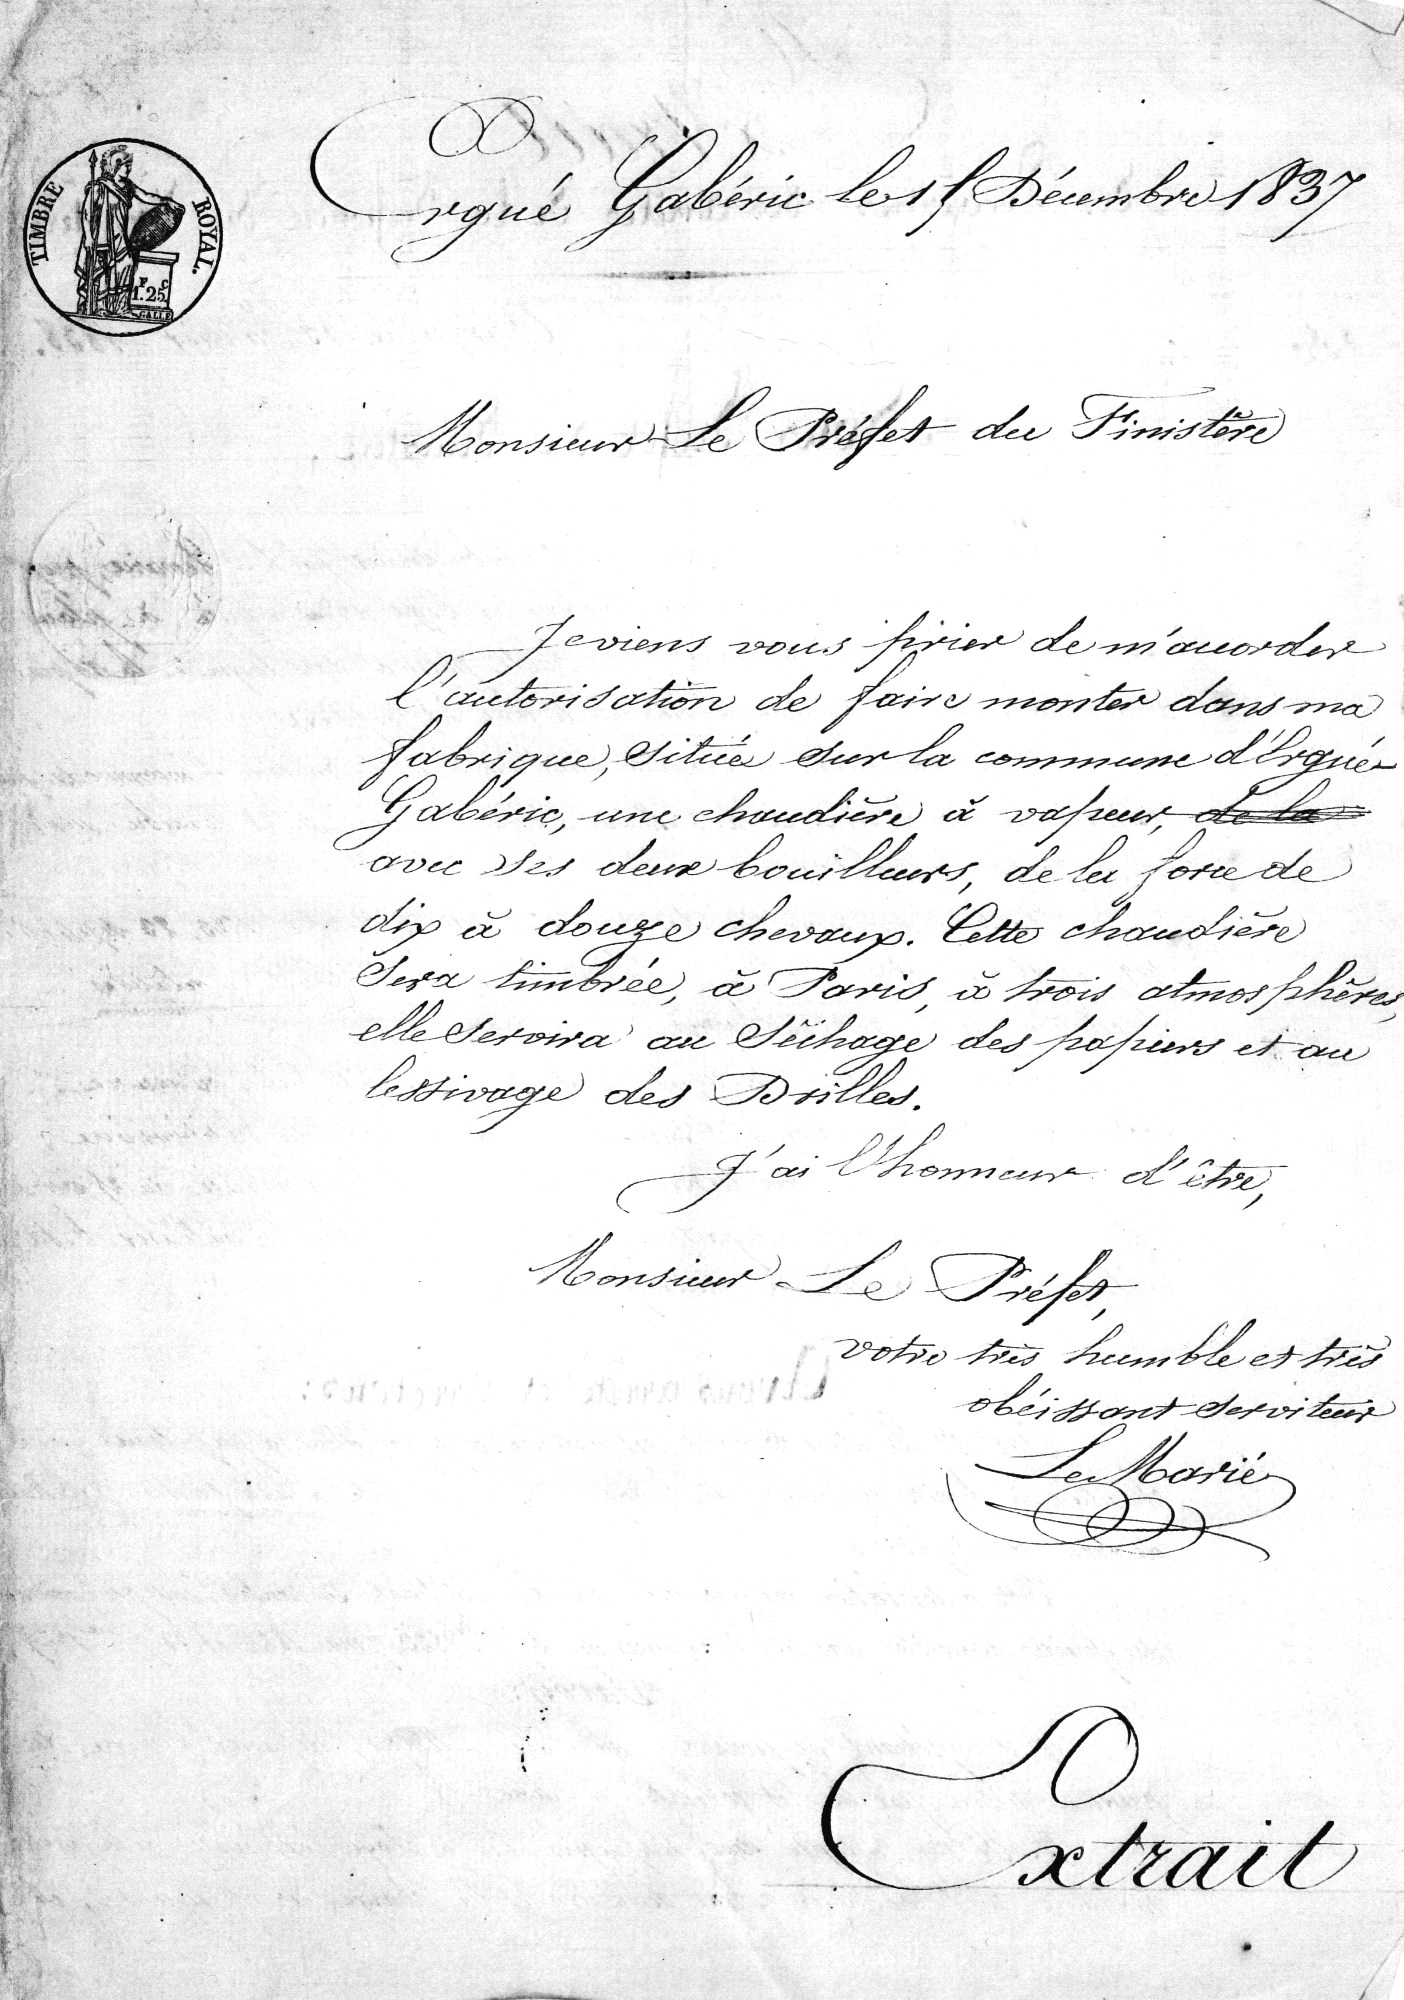 TIMBRE ROYAL.
F C
1.25.
GALLE
Ergué Gabéric le 15 Décembre 1837
Monsieur Le Préfet du Finistère
Je viens vous prier de m'accorder
l'autorisation de faire monter dans ma
fabrique, située sur la commune d'Ergué-
Gabéric, une chaudière à vapeur, de la
avec ses deux bouilleurs, de la force de
dix à douze chevaux. Cette chaudière
sera timbrée, à Paris, à trois atmosphères,
elle servira au séchage des papiers et au
lessivage des Drilles.
J'ai l'honneur d'être,
Monsieur Le Préfet,
votre très humble et très
obéissant serviteur
Le Marié
Extrait